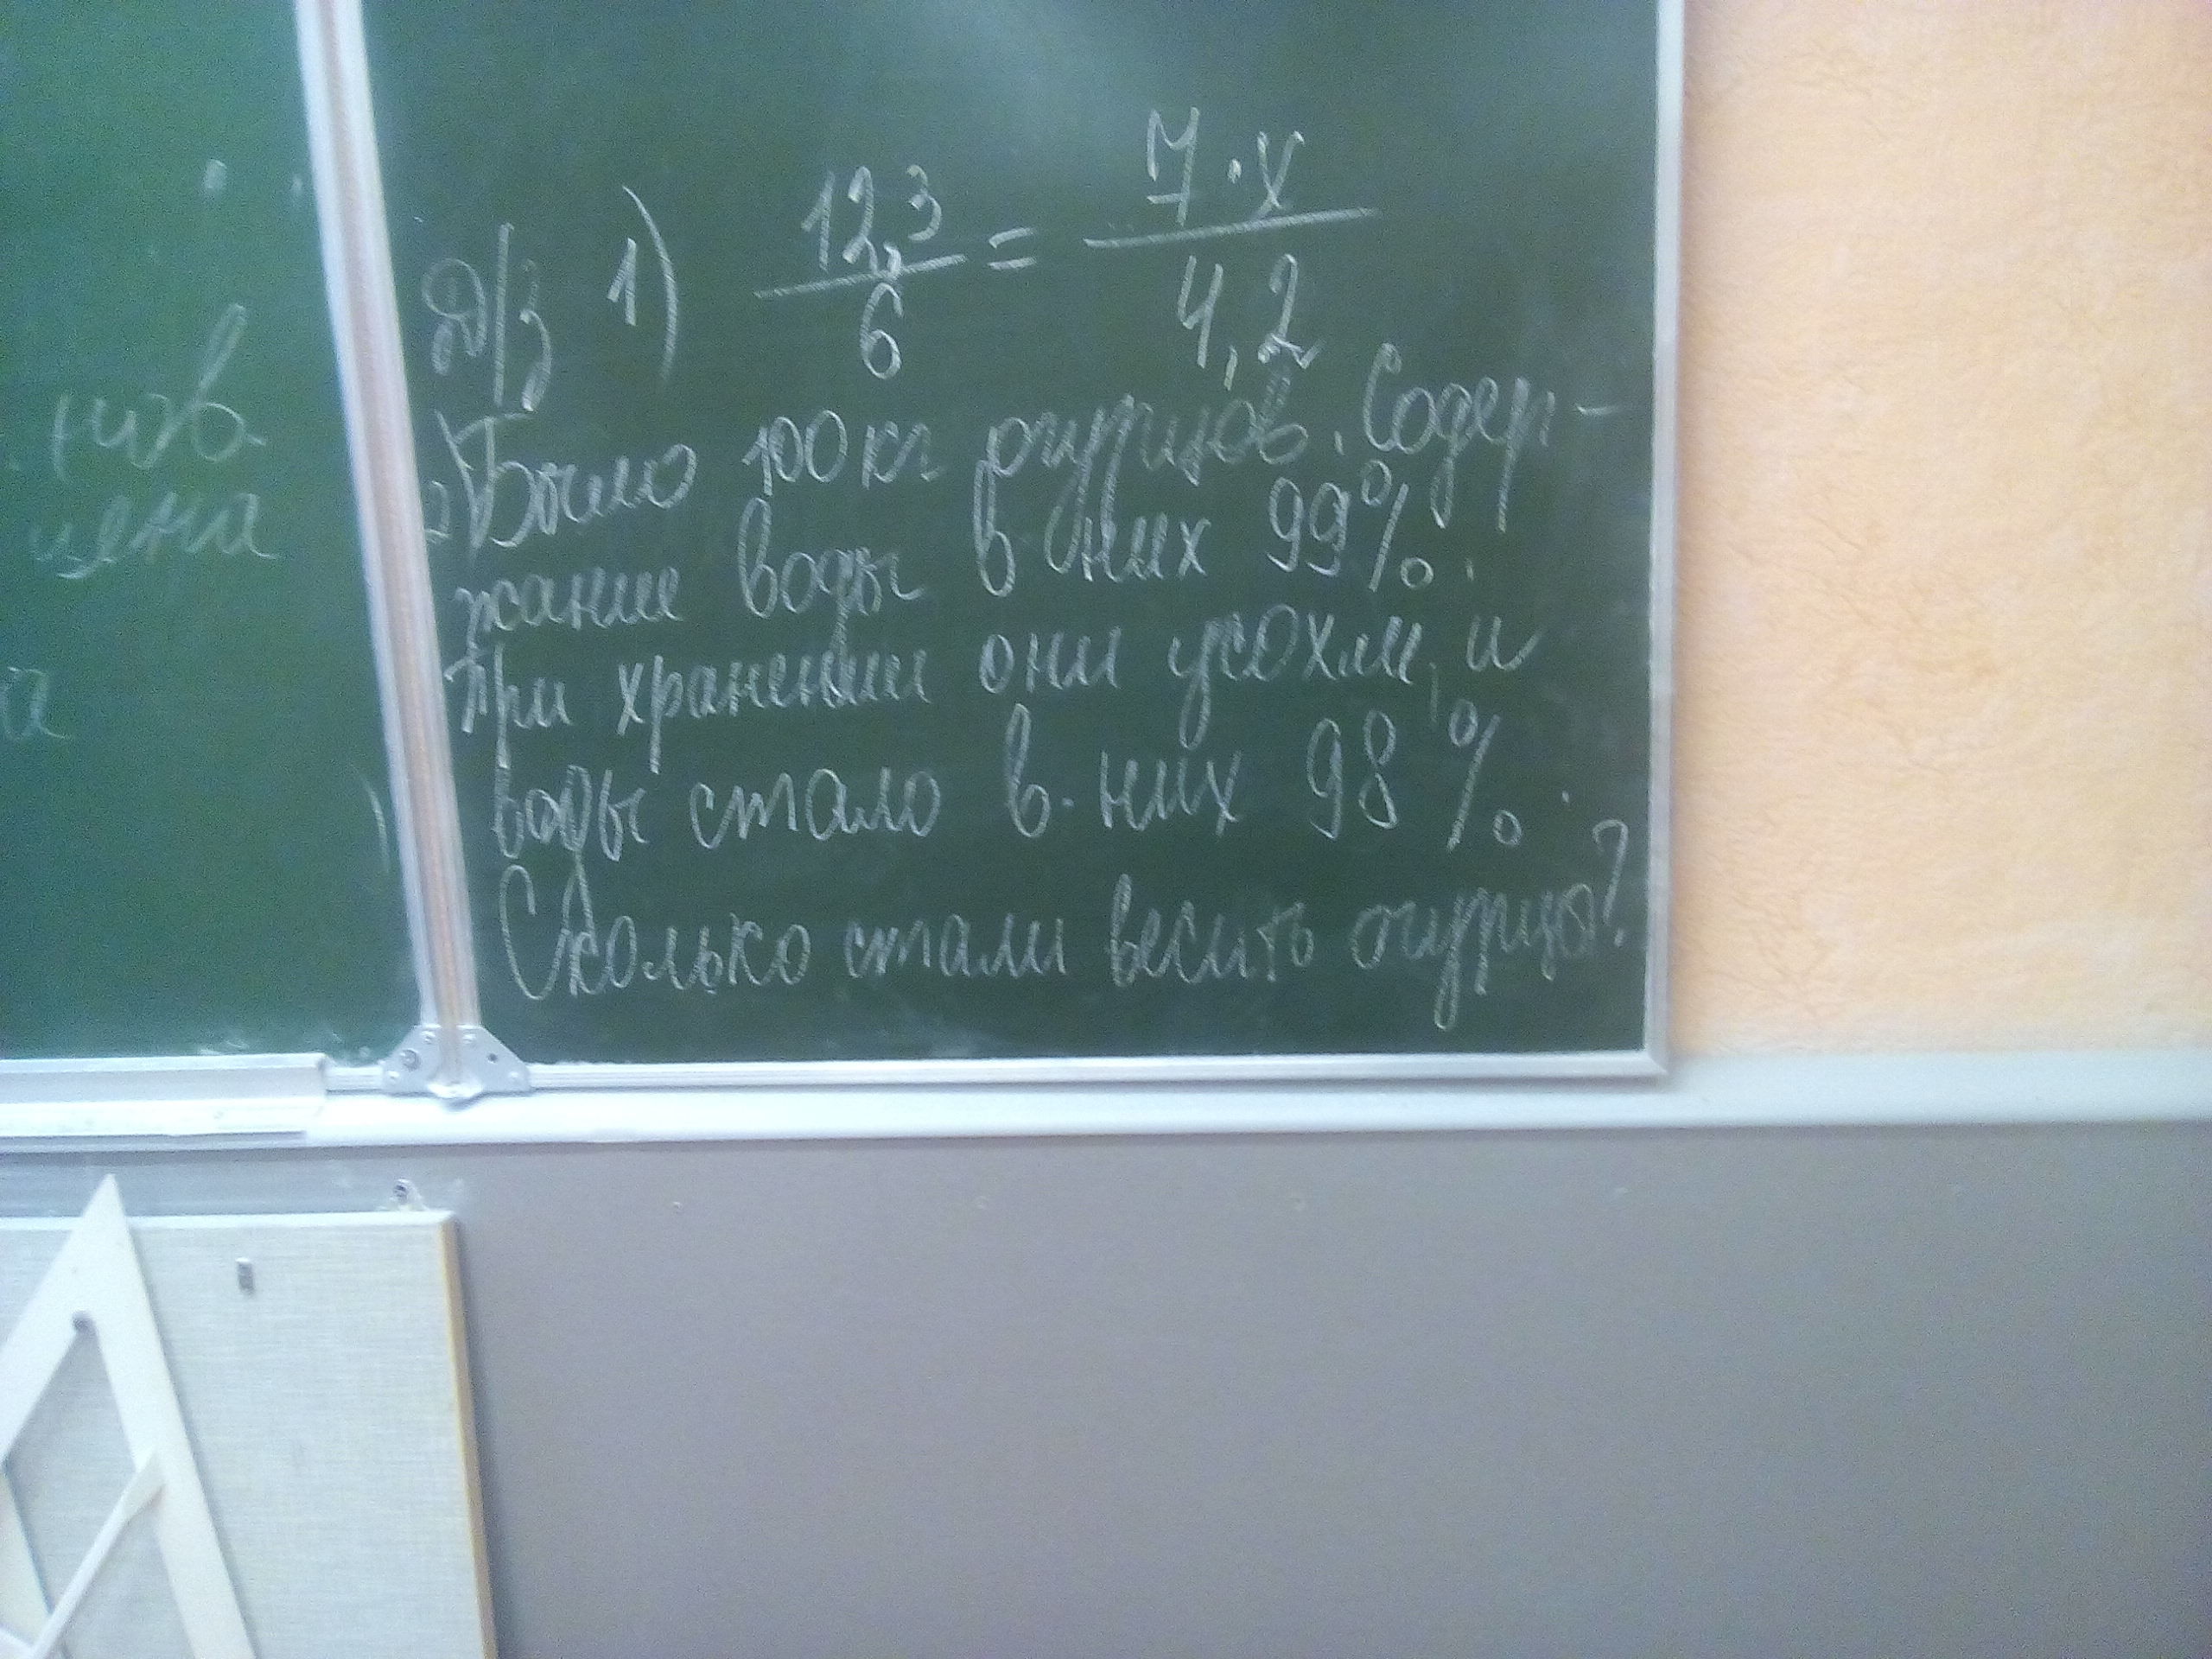 нов
цена
а
Д/з 1) 12,3/6 = 7·x/4,2
2) Было 100 кг огурцов. Содер-
жание воды в них 99%.
При хранении они усохли, и
воды стало в них 98%.
Сколько стали весить огурцы?